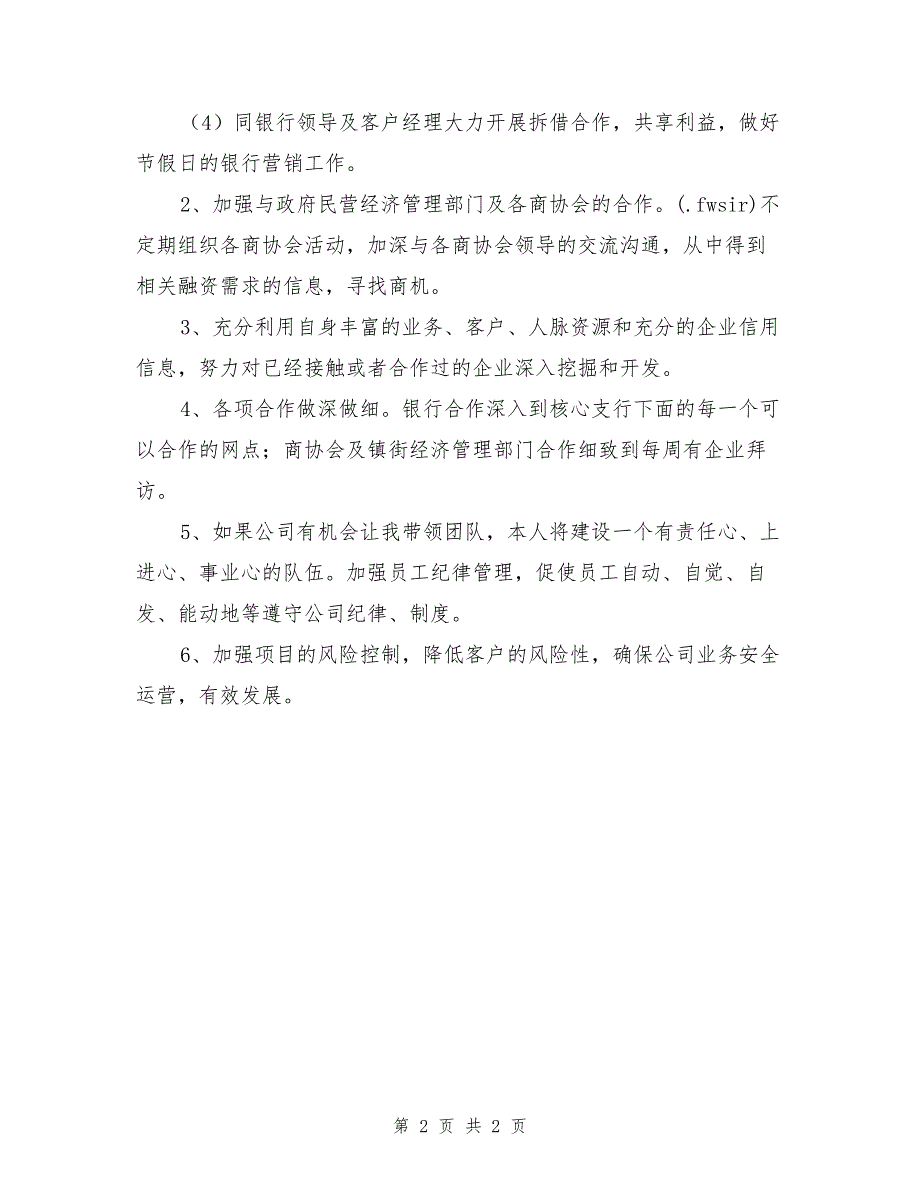 （4）同银行领导及客户经理大力开展拆借合作，共享利益，做好
节假日的银行营销工作。
2、加强与政府民营经济管理部门及各商协会的合作。(.fwsir)不
定期组织各商协会活动，加深与各商协会领导的交流沟通，从中得到
相关融资需求的信息，寻找商机。
3、充分利用自身丰富的业务、客户、人脉资源和充分的企业信用
信息，努力对已经接触或者合作过的企业深入挖掘和开发。
4、各项合作做深做细。银行合作深入到核心支行下面的每一个可
以合作的网点；商协会及镇街经济管理部门合作细致到每周有企业拜
访。
5、如果公司有机会让我带领团队，本人将建设一个有责任心、上
进心、事业心的队伍。加强员工纪律管理，促使员工自动、自觉、自
发、能动地等遵守公司纪律、制度。
6、加强项目的风险控制，降低客户的风险性，确保公司业务安全
运营，有效发展。
第 2 页 共 2 页